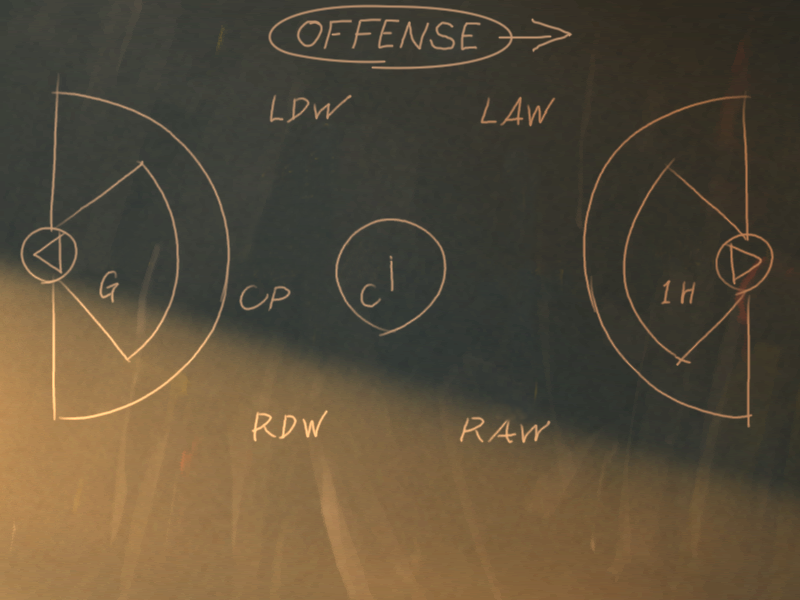 OFFENSE
LDW LAW
G CP C 1H
RDW RAW